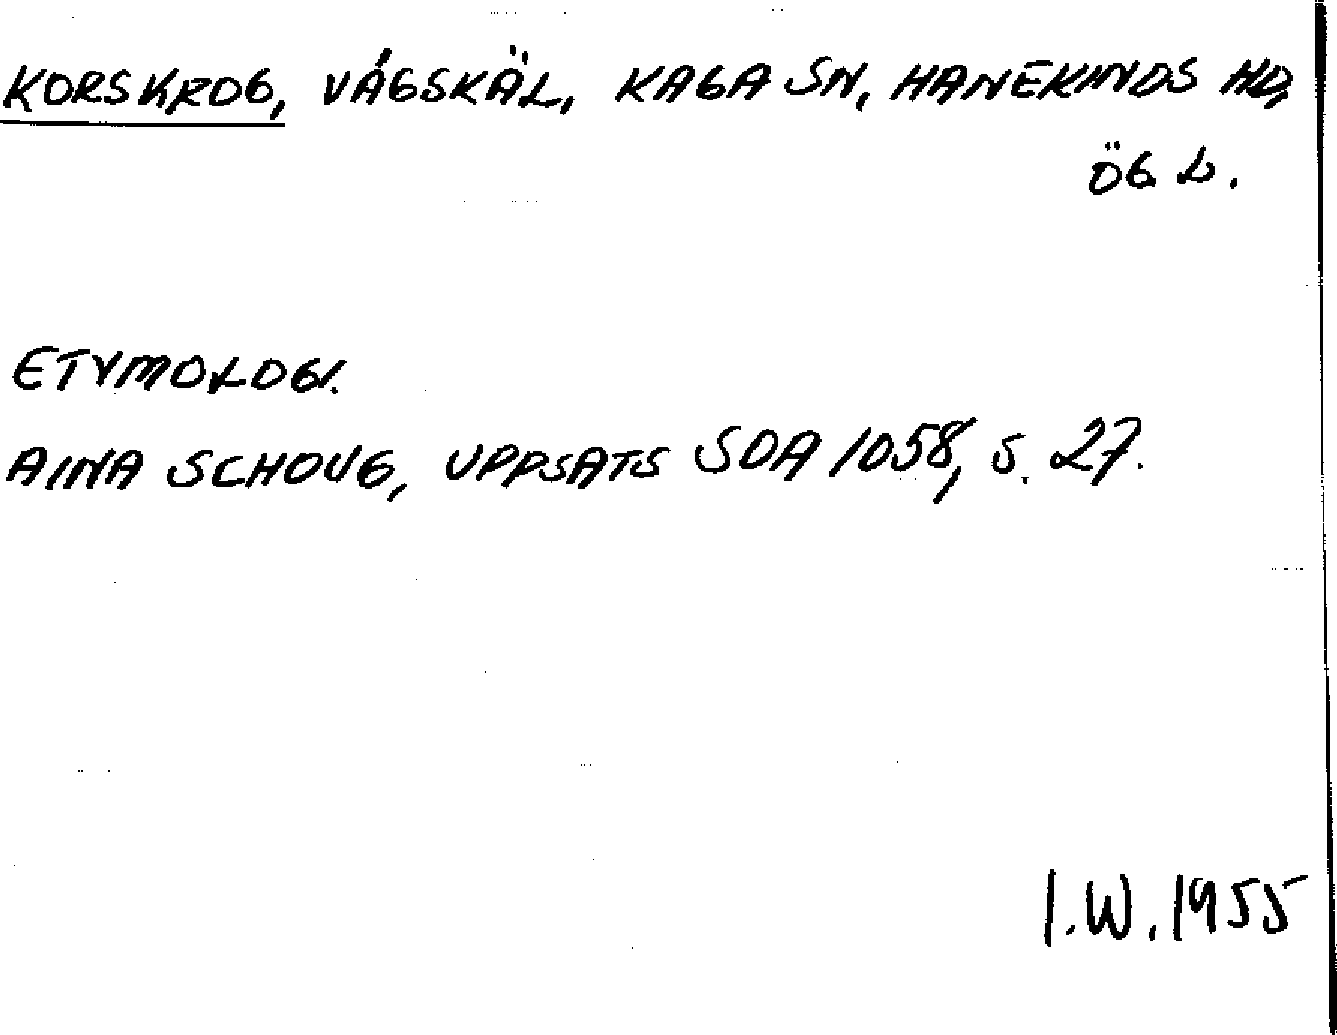 KORSKROG, VÄGSKÄL, KAGA SN, HANEKINDS HD,
ÖG L.
ETYMOLOGI.
AINA SCHOUG, UPPSATS SOA 1058, S. 27.
I.W.1955